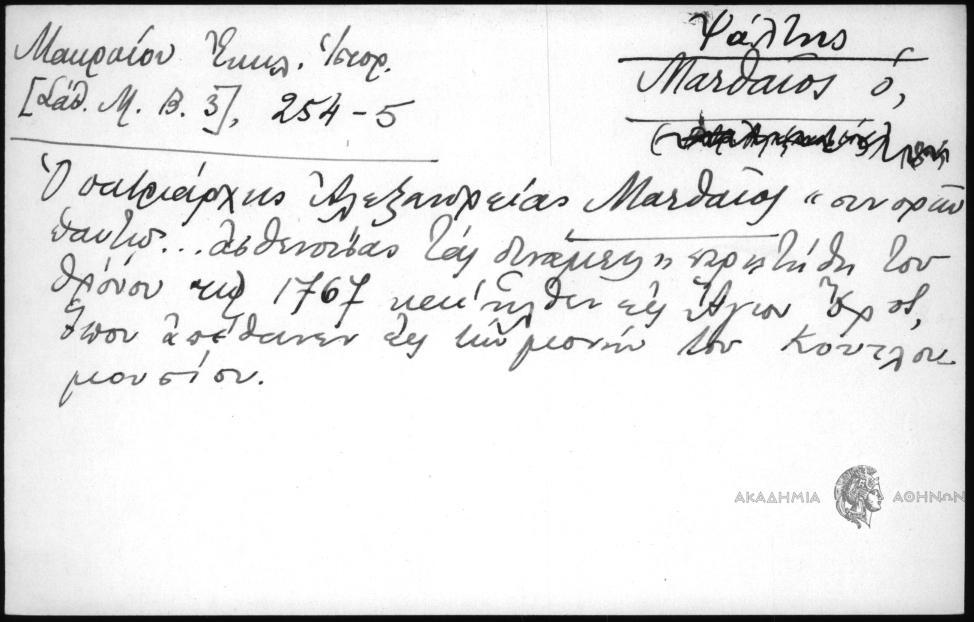 Μακραίου Ἐκκλ. Ἱστορ.
[Σάθ. Μ. Β. 3], 254-5
Ψάλτης
Ματθαῖος ὁ,
Ὁ πατριάρχης Ἀλεξανδρείας Ματθαῖος «συνορῶν
ἑαυτῷ... ἀσθενούσας τὰς δυνάμεις» παρῃτήθη τοῦ
θρόνου τῷ 1767 καὶ ἦλθεν εἰς Ἅγιον Ὄρος,
ὅπου ἀπέθανεν εἰς τὴν μονὴν τοῦ Κουτλου-
μουσίου.
ΑΚΑΔΗΜΙΑ ΑΘΗΝΩΝ